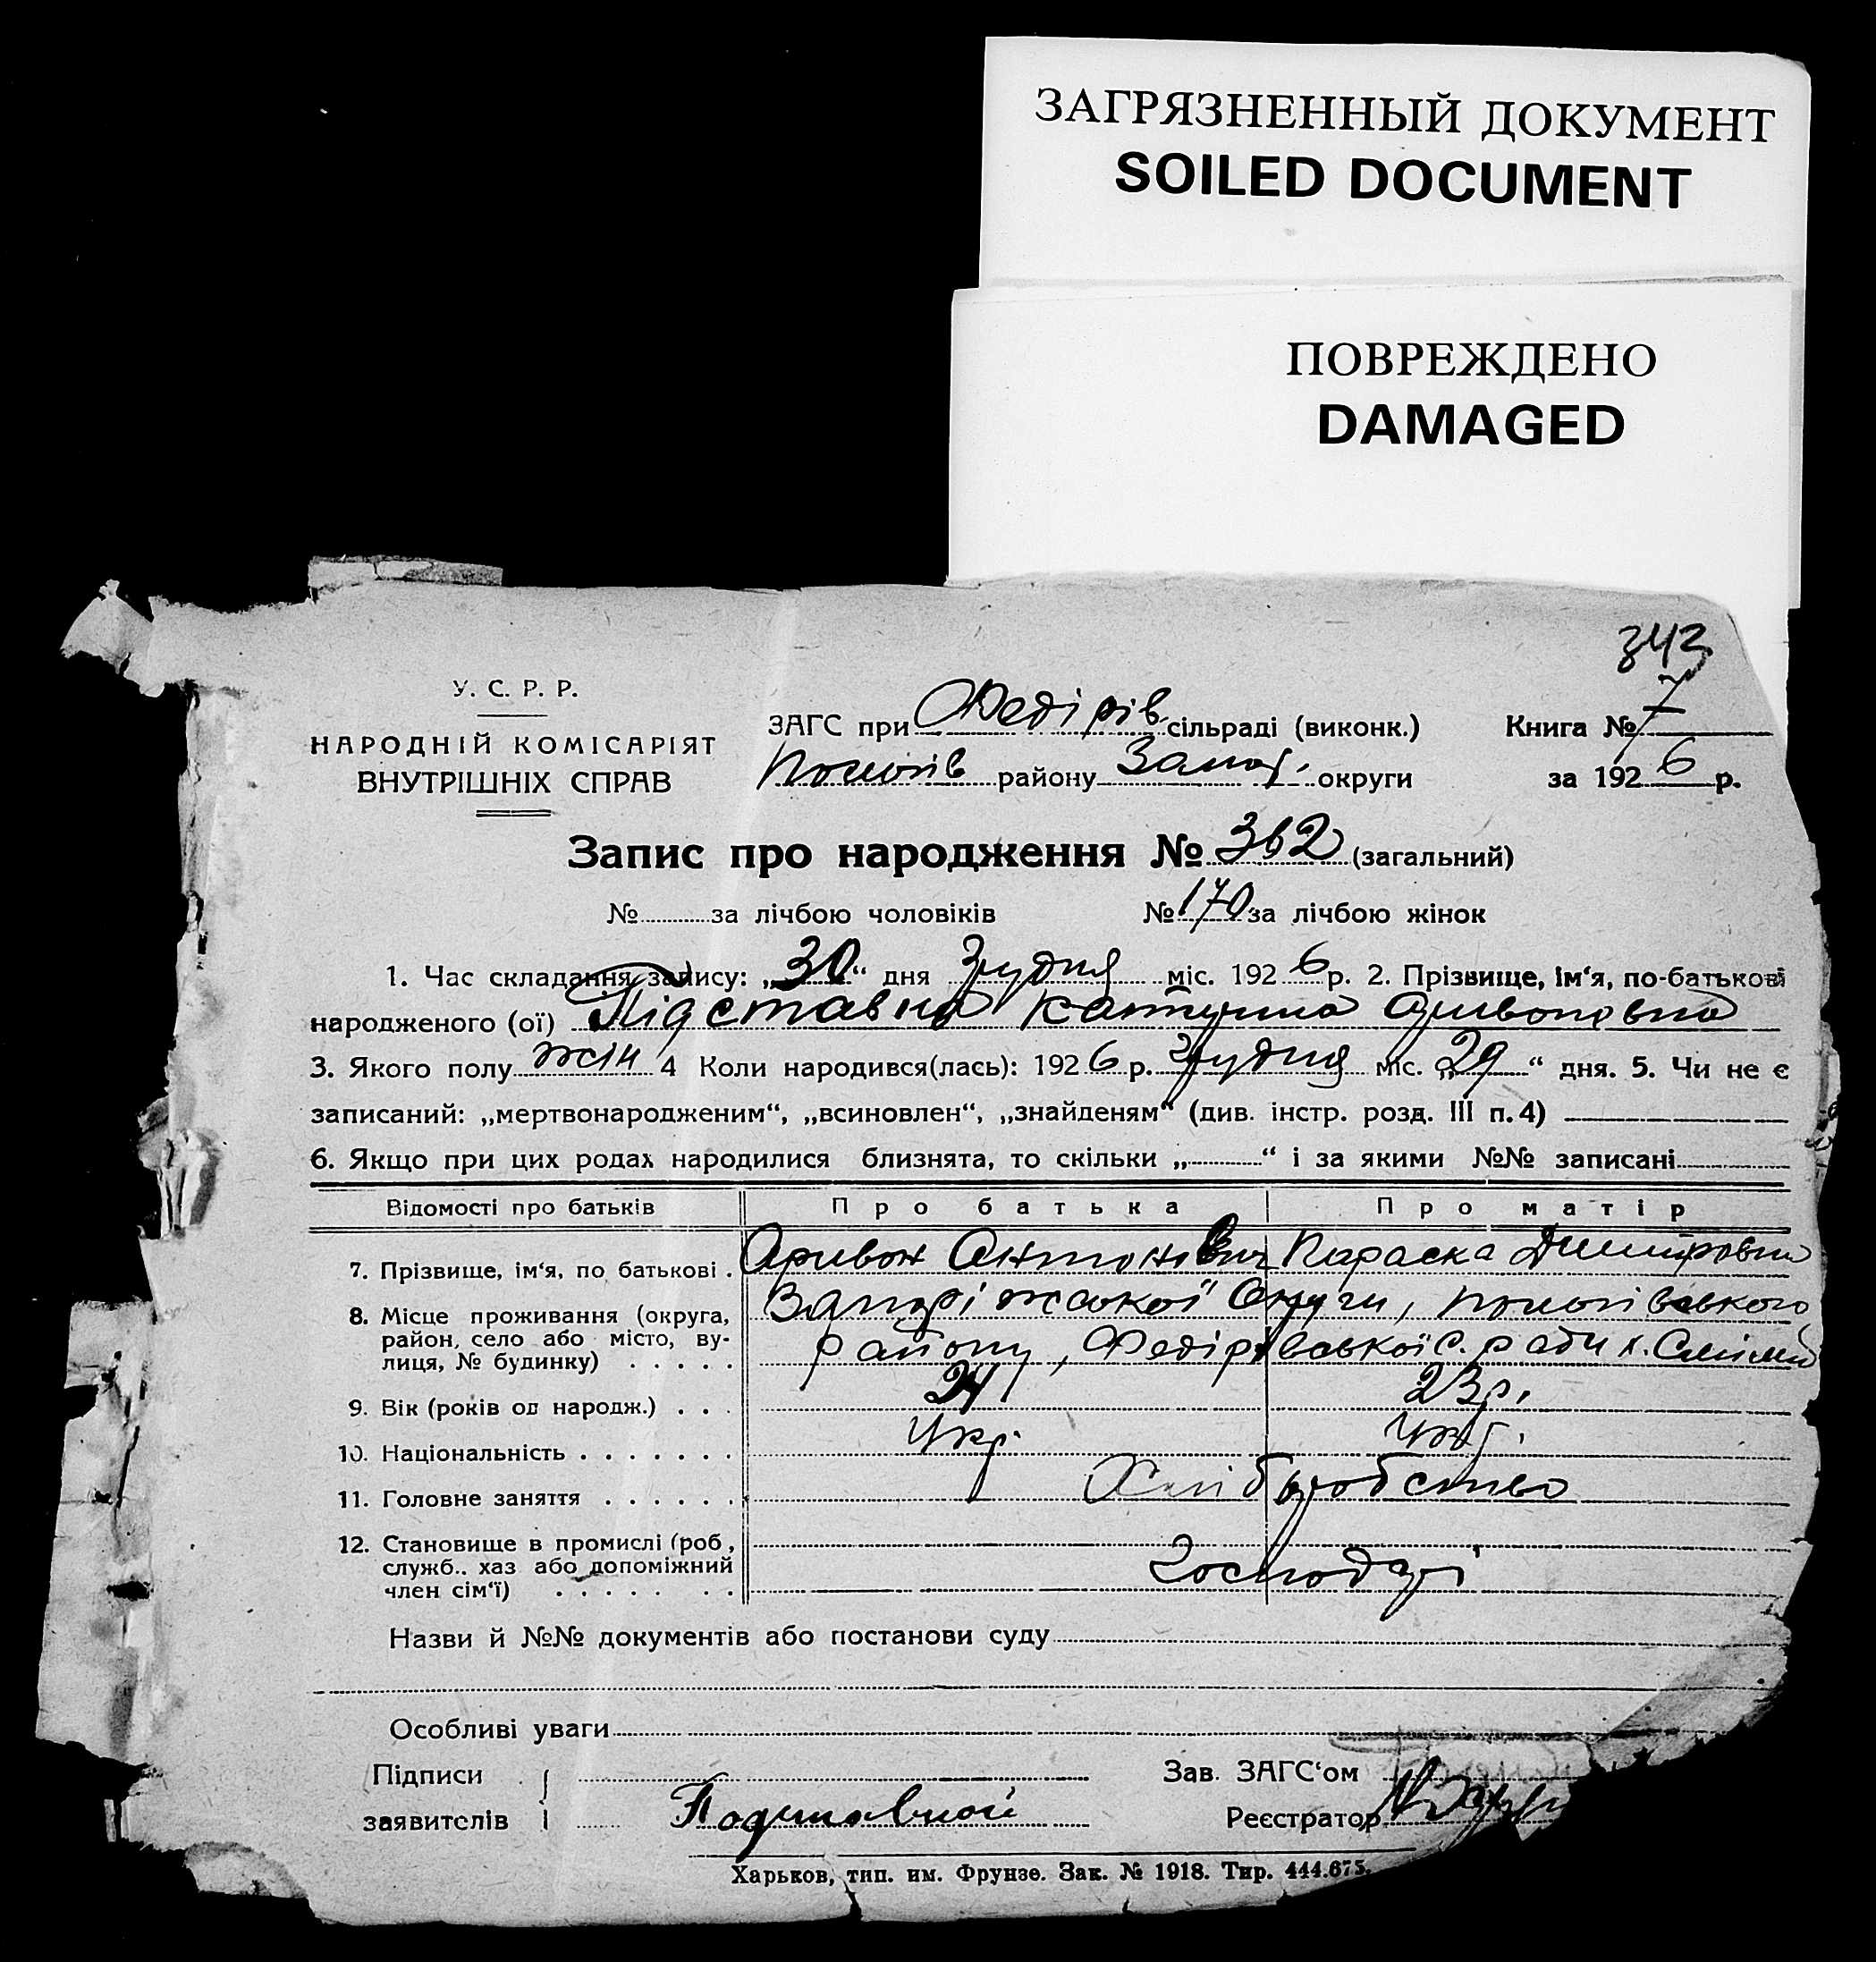 ЗАГРЯЗНЕННЫЙ ДОКУМЕНТ
SOILED DOCUMENT
ПОВРЕЖДЕНО
DAMAGED
342
У. С. Р. Р.
НАРОДНІЙ КОМІСАРІЯТ
ВНУТРІШНІХ СПРАВ
ЗАГС при Федірів. сільраді (виконк.) Книга № 7
Пологів району Запор. округи за 1926 р.
Запис про народження № 362 (загальний)
№ за лічбою чоловіків № 170 за лічбою жінок
1. Час складання запису: „30“ дня Грудня міс. 1926 р. 2. Прізвище, ім‘я, по-батькові
народженого (ої) Підставна Катерина
3. Якого полу жін 4 Коли народився(лась): 1926 р. Грудня міс. „29“ дня. 5. Чи не є
записаний: „мертвонародженим“, „всиновлен“, „знайденям“ (див. інстр. розд. III п. 4)
6. Якщо при цих родах народилися близнята, то скільки „ “ і за якими №№ записані
Відомості про батьків Про батька Про матір
7. Прізвище, ім‘я, по батькові . Антонович Параска Дмитровна
8. Місце проживання (округа, район, село або місто, вулиця, № будинку) . . . . . Запоріжської Округи, Пологівського
району, Федірівської с. ради х.
9. Вік (років од народж.) . . . 24 23 р.
10. Національність . . . . . . . Укр. Укр.
11. Головне заняття . . . . . . Хліборобство
12. Становище в промислі (роб, служб.. хаз або допоміжний член сім‘ї) . . . . . . . Господарі
Назви й №№ документів або постанови суду
Особливі уваги
Підписи Зав. ЗАГС‘ом
заявителів Подставной Реєстратор
Харьков, тип. им. Фрунзе. Зак. № 1918. Тир. 444.675.